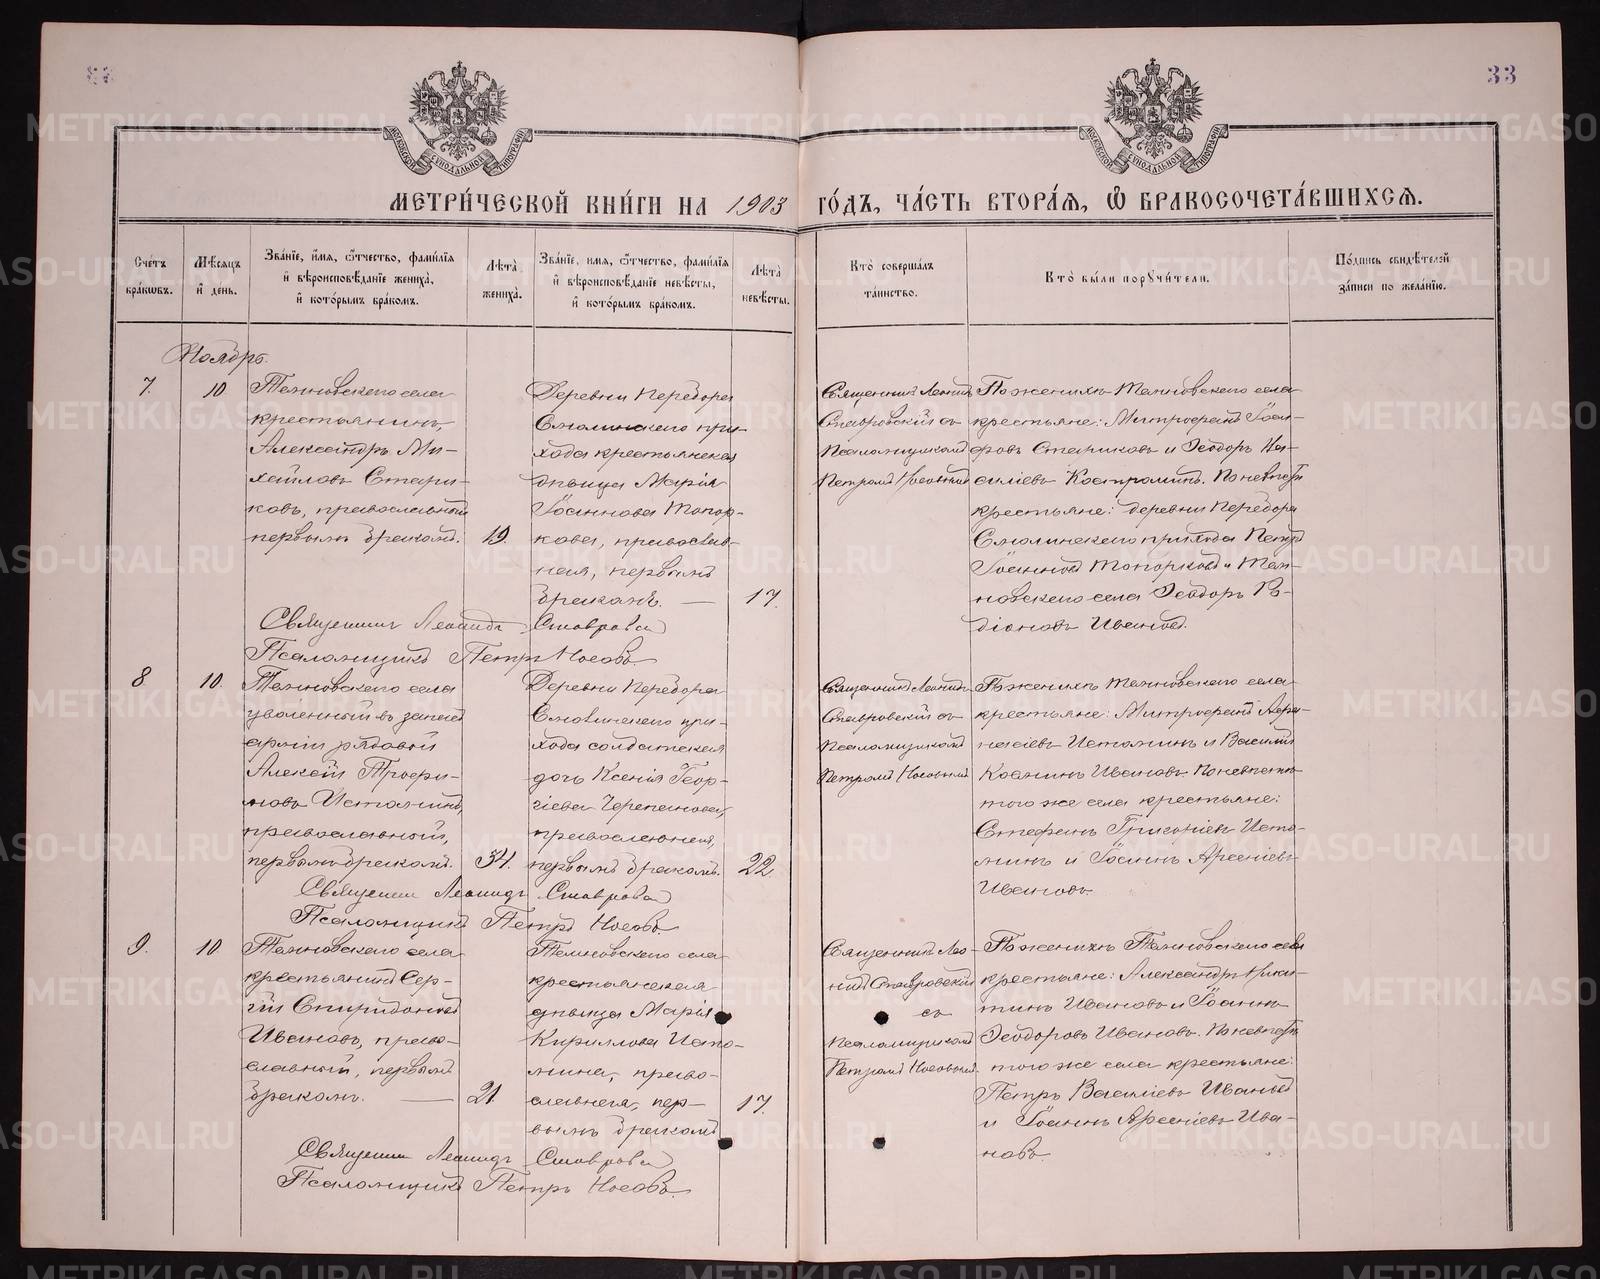 33
МЕТРИ́ЧЕСКОЙ КНИ́ГИ НА 1903 ГО́ДЪ, ЧА́СТЬ ВТОРА́Я, Ѡ БРАКОСОЧЕТА́ВШИХСЯ.
Сче́тъ бра́кωвъ.
Мѣ́сяцъ и҆ день.
Зва́нїе, и҆́мя, ѻ҆́тчество, фами́лїя и҆ вѣроисповѣ́данїе жениха̀, и҆ кото́рымъ бра́комъ.
Лѣ́та̀ жениха̀.
Зва́нїе, и҆мя, ѻ҆́тчество, фами́лїя и҆ вѣроисповѣ́данїе невѣ́сты, и҆ кото́рымъ бра́комъ.
Лѣ́та̀ невѣ́сты.
Кто̀ соверша́лъ та́инство.
Кто̀ бы́ли порꙋчи́тели.
По́дпись свидѣ́телей за́писи по жела́нїю.
Ноябрь.
7.
10
Темновского села
крестьянинъ,
Александръ Ми-
хайловъ Стари-
ковъ, православный
первымъ бракомъ.
19.
Деревни Перебора
Смолинскаго при-
хода крестьянская
дѣвица Марія
Іоаннова Топор-
кова, православ-
ная, первымъ
бракомъ. —
17.
Священникъ Леонидъ
Ставровскій съ
Псаломщикомъ
Петромъ Носовымъ
По женихѣ Темновского села
крестьяне: Митрофанъ Іоси-
фовъ Стариковъ и Ѳеодоръ Ва-
силіевъ Костроминъ. По невѣстѣ
крестьяне: деревни Перебора
Смолинскаго прихода Петръ
Іоанновъ Топорковъ и Тем-
новского села Ѳеодоръ Ро-
діоновъ Ивановъ.
Священникъ Леонидъ Ставровск
Псаломщикъ Петръ Носовъ.
8
10.
Темновского села
уволенный въ запасъ
арміи рядовой
Алексѣй Трофи-
мовъ Истоминъ,
православный,
первымъ бракомъ.
34.
Деревни Перебора
Смолинскаго при-
хода солдатская
дочь Ксенія Геор-
гіева Черепанова,
православная,
первымъ бракомъ.
22
Священникъ Леонидъ
Ставровскій съ
Псаломщикомъ
Петромъ Носовымъ
По женихѣ Темновского села
крестьяне: Митрофанъ Аѳа-
насіевъ Истоминъ и Василій
Козминъ Ивановъ. По невѣстѣ
того же села крестьяне:
Стефанъ Григоріевъ Исто-
минъ и Іоаннъ Арсеніевъ
Ивановъ.
Священникъ Леонидъ Ставровск
Псаломщикъ Петръ Носовъ.
9.
10
Темновского села
крестьянинъ Сер-
гій Спиридоновъ
Ивановъ, право-
славный, первымъ
бракомъ. —
21.
Темновского села
крестьянская
дѣвица Марія
Кириллова Исто-
мина, право-
славная, пер-
вымъ бракомъ
17.
Священникъ Лео-
нидъ Ставровскій
съ
Псаломщикомъ
Петромъ Носовымъ
По женихѣ Темновского села
крестьяне: Александръ Ники-
тинъ Ивановъ и Іоаннъ
Ѳеодоровъ Ивановъ. По невѣстѣ
того же села крестьяне:
Петръ Василіевъ Ивановъ
и Іоаннъ Арсеніевъ Ива-
новъ.
Священникъ Леонидъ Ставровск
Псаломщикъ Петръ Носовъ.
METRIKI.GASO-URAL.RU